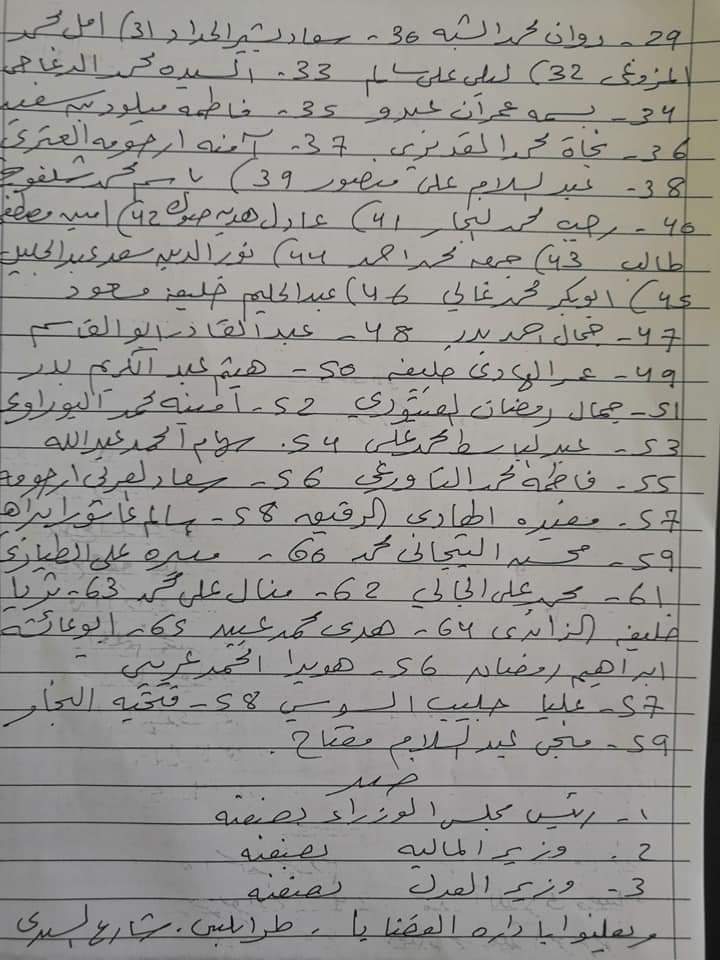 29- روان محمد الشبه 30- سعاد بشير الحداد 31) امل محمد
المزوغي 32) ليلى علي سالم 33- السيده محمد الدغاجي
34- بسمه عمران عبدو 35- فاطمه ميلود بن سعيد
36- نجاة محمد القديري 37- آمنه ارحومه العتري
38- عبد السلام علي منصور 39) باسم محمد شلفوح
40- رجب محمد النجار 41) عادل هديه صوله 42) امنيه مصطفى
طالب 43) جمعه محمد احمد 44) نور الدين سعد عبد الجليل
45) ابوبكر محمد غالي 46) عبد الحليم خليفه مسعود
47- جمال احمد بدر 48- عبد القادر ابو القاسم
49- عمر الهادي خليفه 50- هيثم عبد الكريم بدر
51- جمال رمضان 52- آمنه محمد البوراوي
53- عبد الباسط محمد علي 54- سهام امحمد عبد الله
55- فاطمه محمد التاورغي 56- سعاد العربي ارحومه
57- مفيده الهادي الرقيق 58- سالم عاشور ابراهيم
59- محسن التيجاني محمد 60- ميره علي الطياري
61- محمد علي الجالي 62- منال علي محمد 63- ثريا
خليفه الزائدي 64- هدى محمد عبيد 65- ابو عائشه
ابراهيم رمضان 56- هويدا امحمد عريبي
57- عليا حبيب السوسي 58- فتحيه النجار
59- منجي عبد السلام مفتاح.
ضد
1- رئيس مجلس الوزراء بصفته
2- وزير المالية بصفته
3- وزير العدل بصفته
ويعلنوا باداره القضايا، طرابلس، شارع السيدي